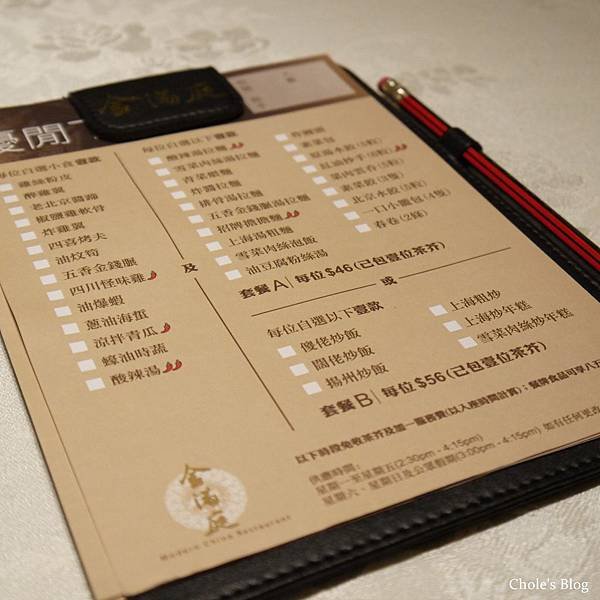 金滿庭
優閒
每位自選小食壹款
雞絲粉皮
醉雞翼
老北京關蹄
椒鹽雞軟骨
炸雞翼
四喜烤夫
油炆筍
五香金錢腒
四川怪味雞
油爆蝦
蔥油海蜇
涼拌青瓜
蠔油時蔬
酸辣湯
及
每位自選以下壹款
酸辣湯拉麵
雪菜肉絲湯拉麵
青菜煨麵
炸醬拉麵
排骨湯拉麵
五香金錢腒湯拉麵
招牌擔擔麵
上海湯粗麵
雪菜肉絲泡飯
油豆腐粉絲湯
菜肉雲吞(5粒)
素菜餃(3隻)
北京水餃(5粒)
一口小饅包(4隻)
春卷(2條)
套餐A 每位$46(已包壹位茶芥)
或
每位自選以下壹款
傻佬炒飯
闊佬炒飯
揚州炒飯
上海粗炒
上海炒年糕
雪菜肉絲炒年糕
套餐B 每位$56(已包壹位茶芥)
以下時段免收茶芥及加一服務費(以入座時間計算);餐牌食品可享八五
供應時間:
星期一至星期五(2:30pm - 4:15pm)
星期六、星期日及公眾假期(3:00pm - 4:15pm) 如有任何更改
金滿庭
Modern China Restaurant
Chole's Blog